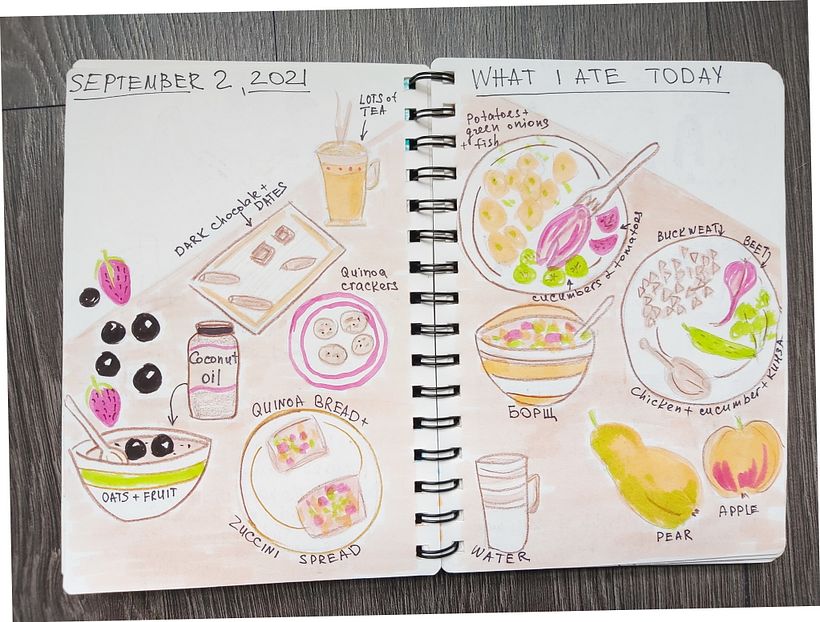 SEPTEMBER 2, 2021
LOTS of
TEA
DARK chocolate +
DATES
Quinoa
crackers
Coconut
oil
QUINOA BREAD +
ZUCCINI SPREAD
OATS + FRUIT
WHAT I ATE TODAY
Potatoes +
green onions
+ fish
cucumbers + tomatoes
BUCKWEAT
BEET
Chicken + cucumber + КИНЗА
БОРЩ
WATER
PEAR
APPLE